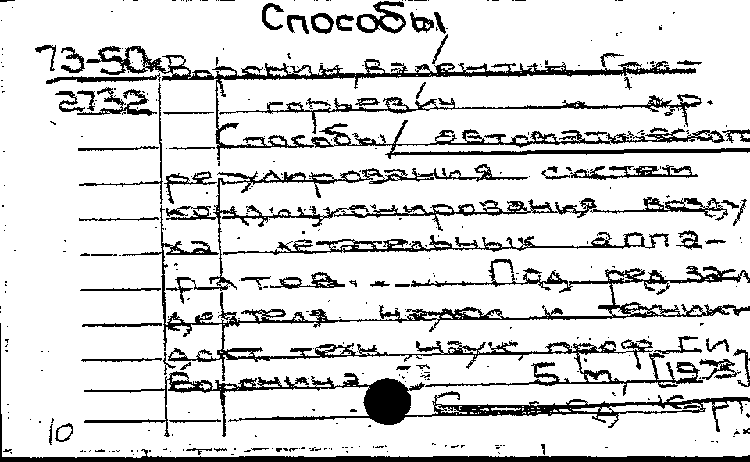 Способы
73-50к Воронин, Валентин Гри-
2732 горьевич и др.
Способы автоматического
регулирования систем
кондиционирования возду
ха летательных аппа-
ратов. Под ред. засл.
деятеля науки и техники
докт. техн. наук, проф. Г.И.
Воронина Б. м., [1973]
10